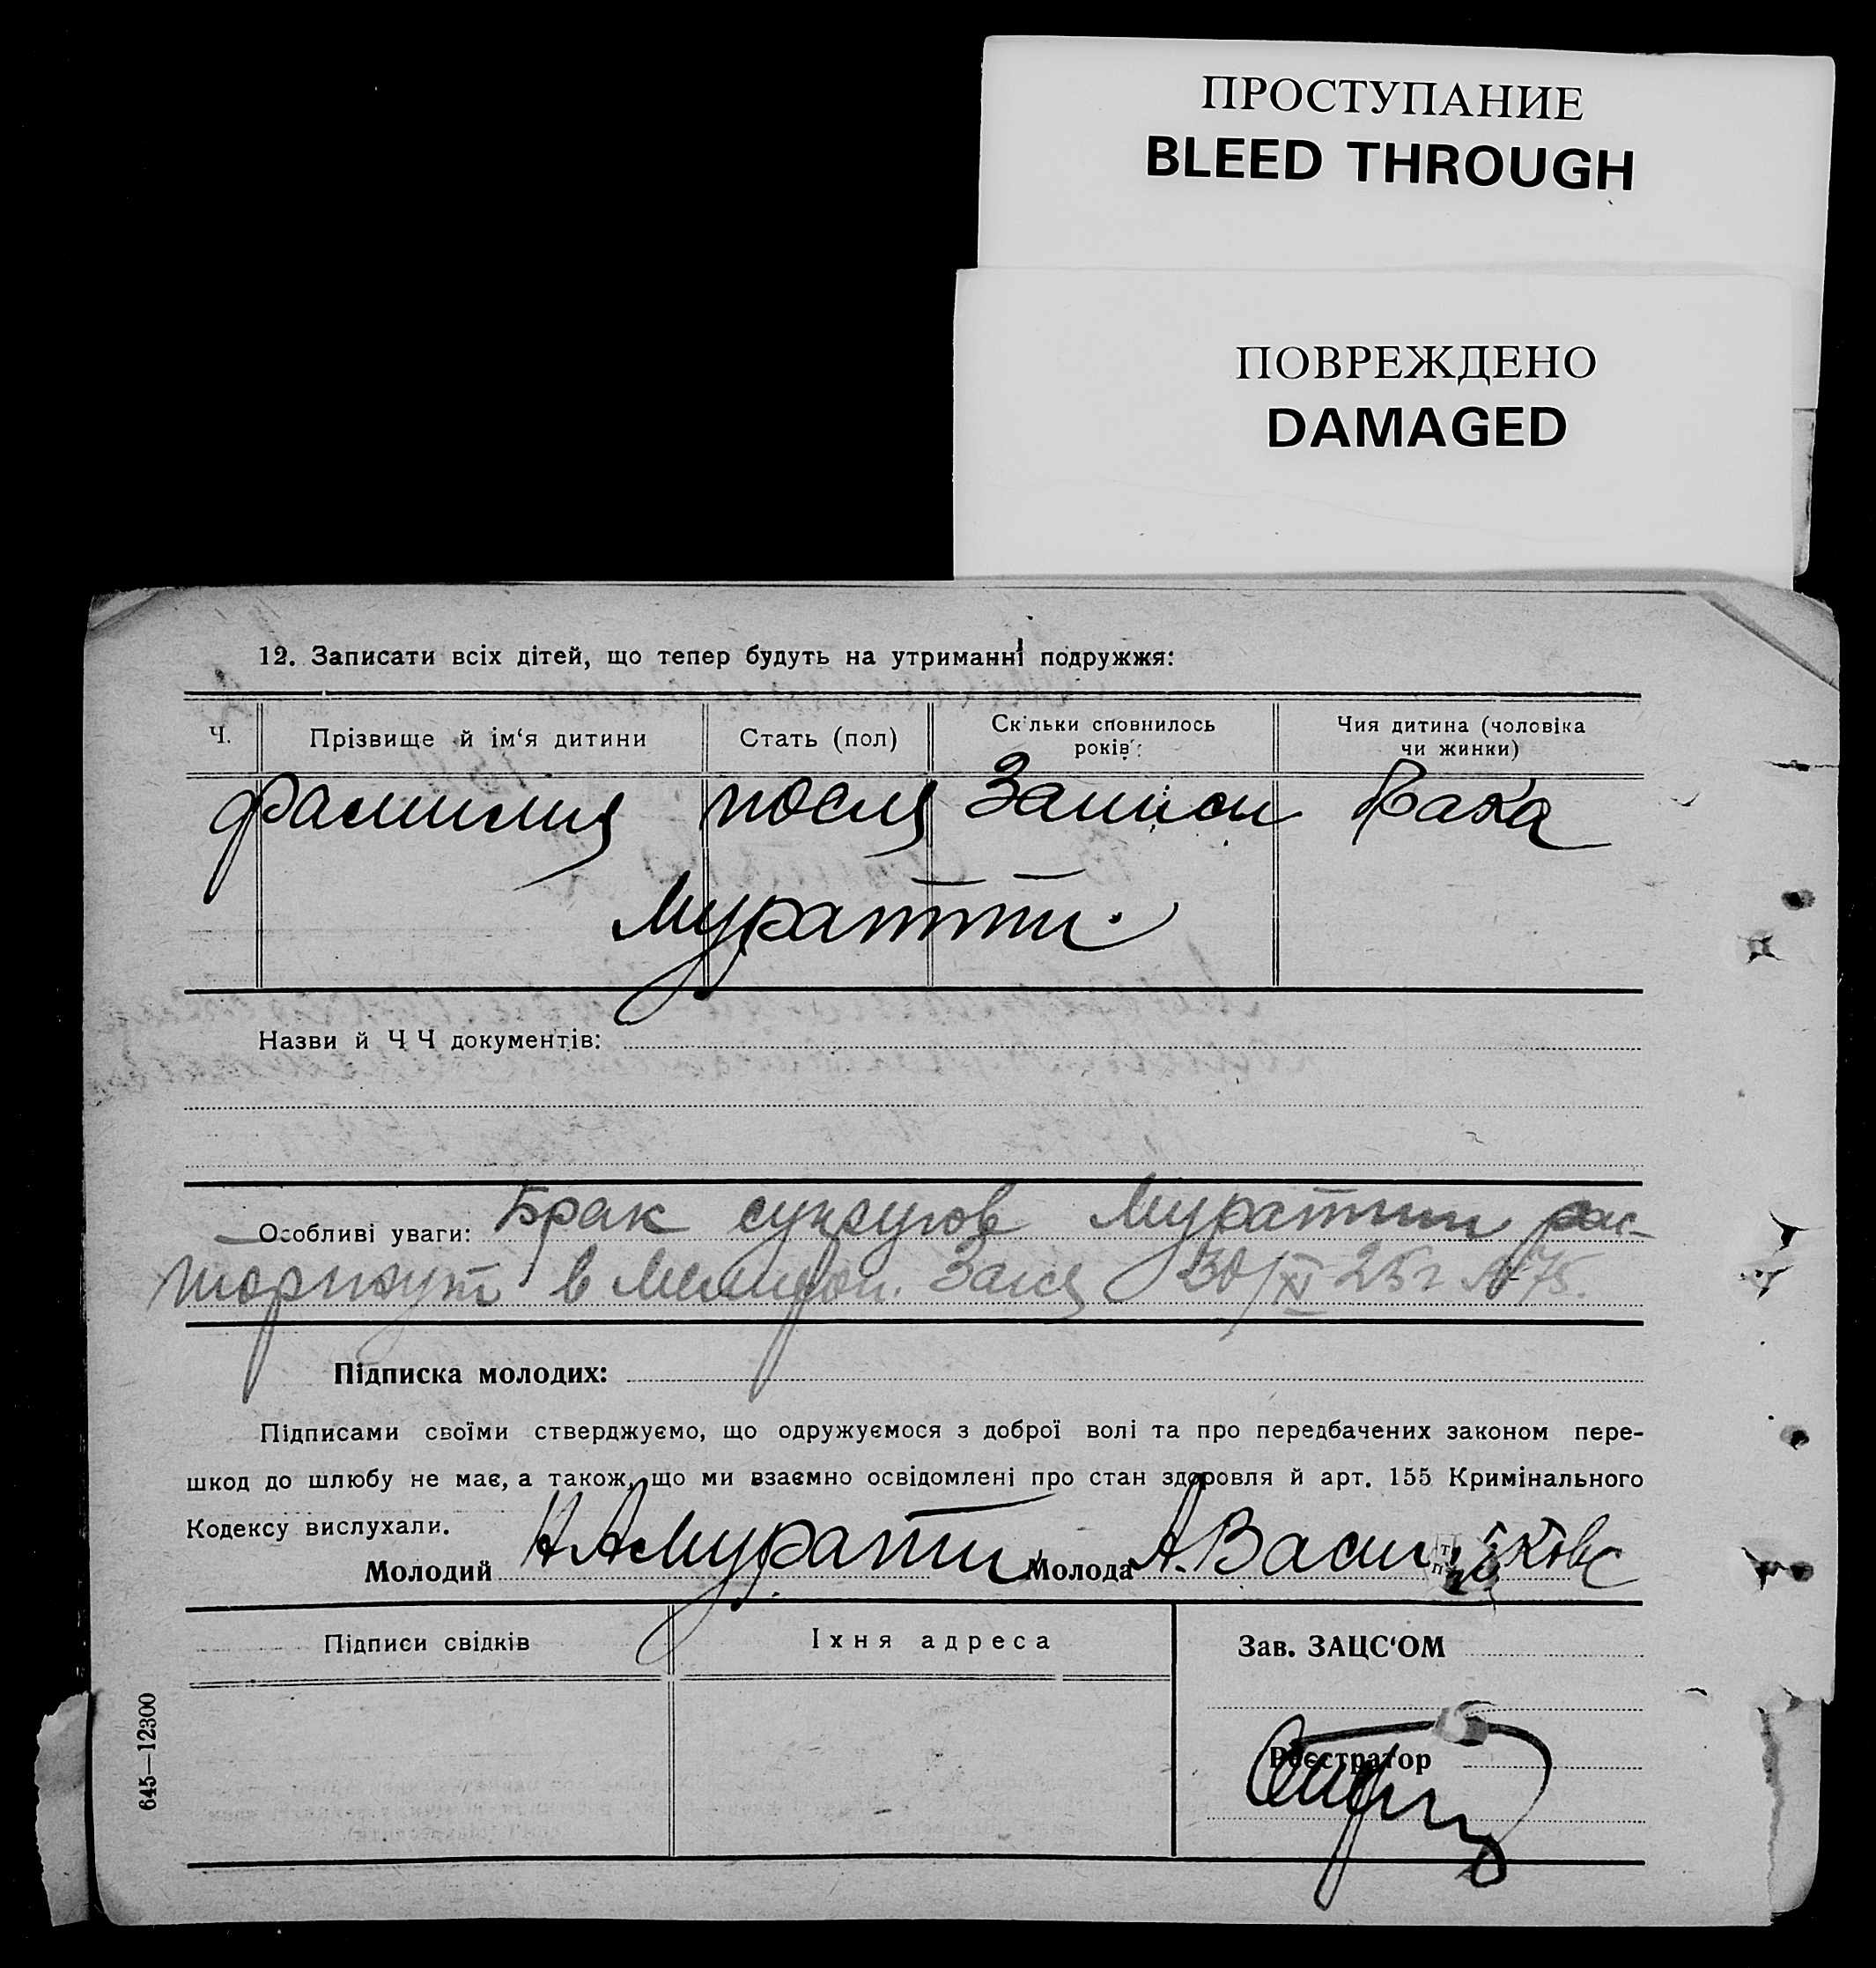 ПРОСТУПАНИЕ
BLEED THROUGH
ПОВРЕЖДЕНО
DAMAGED
12. Записати всіх дітей, що тепер будуть на утриманні подружжя:
Ч. Прізвище й ім‘я дитини Стать (пол) Скільки сповнилось років: Чия дитина (чоловіка чи жинки)
фамилия после записи брака
Муратти.
Назви й Ч Ч документів:
Особливі уваги: Брак супругов Муратти рас-
торгнут в Загсе 30/XI 25г №75.
Підписка молодих:
Підписами своїми стверджуємо, що одружуємося з доброї волі та про передбачених законом пере-
шкод до шлюбу не має, а також, що ми взаємно освідомлені про стан здоровля й арт. 155 Кримінального
Кодексу вислухали.
Молодий Муратти Молода А. Васи
Підписи свідків Їхня адреса Зав. ЗАЦС‘ОМ
Реєстратор
645—12300